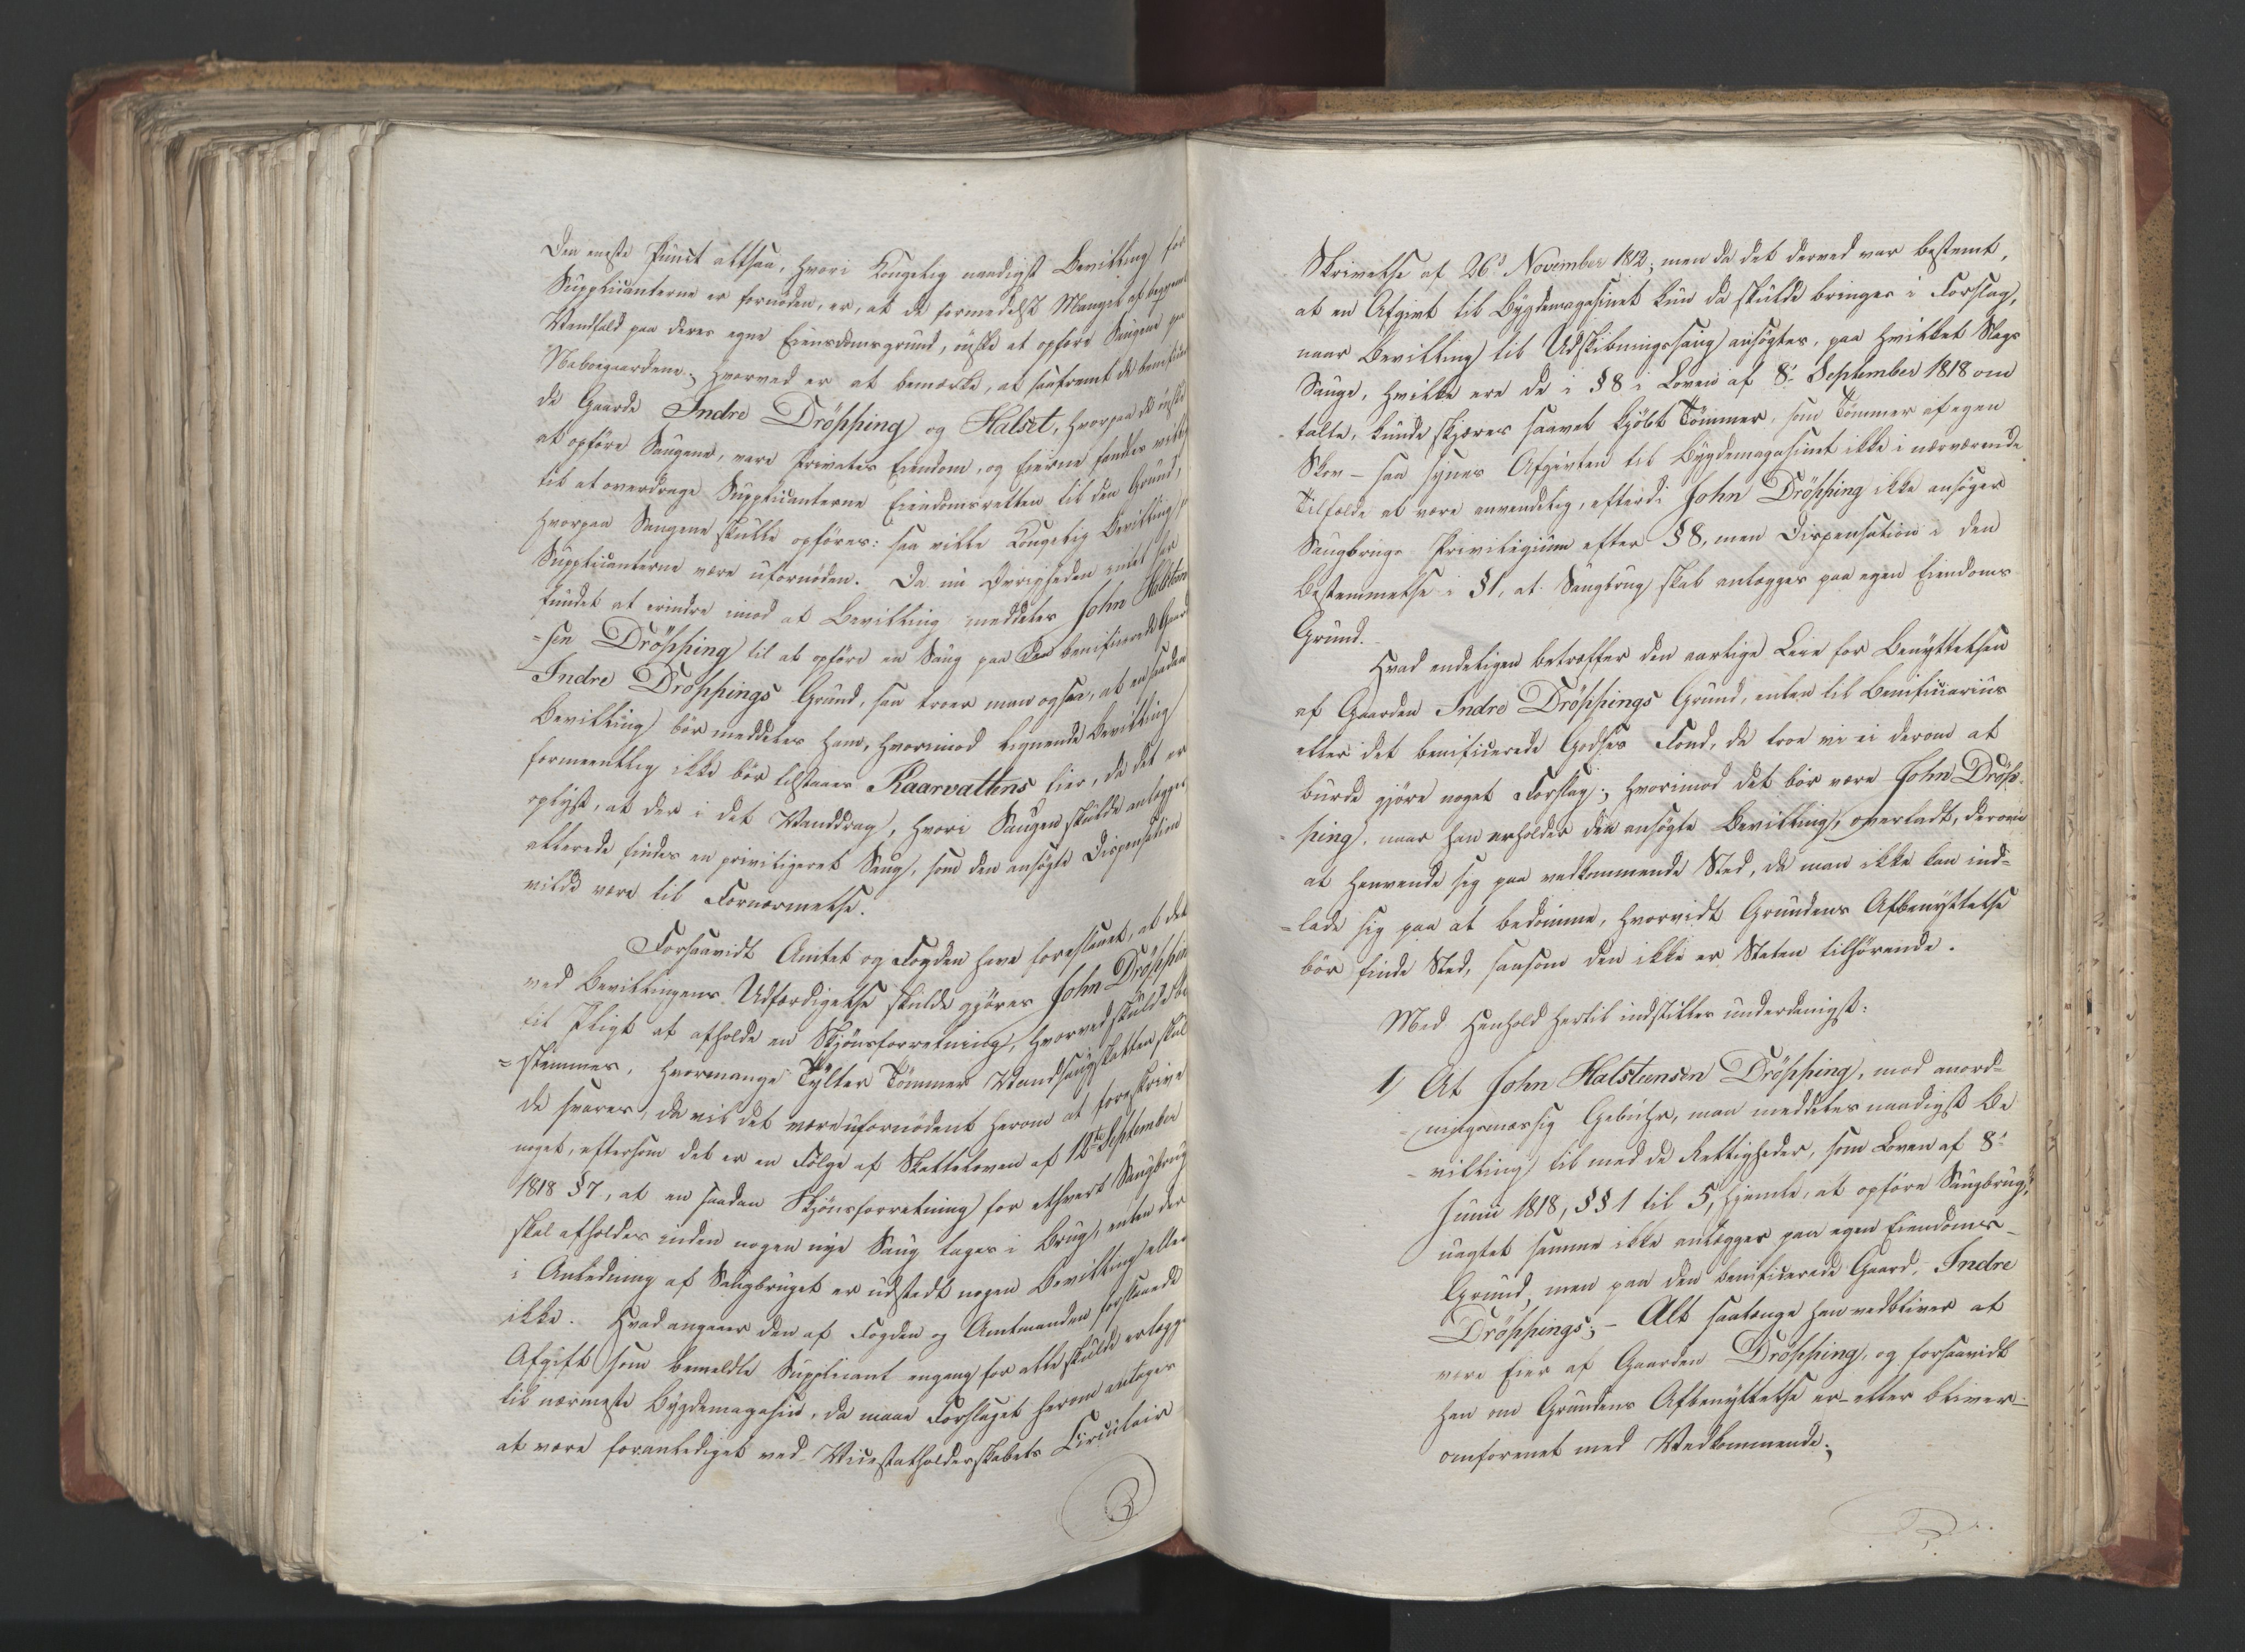 Den eneste Punct altsaa, hvori Kongelig naadigst Bevilling for
Supplicanterne er fornöden, er, at de formedelst Mangel af beqvemt
Vandfald paa deres egne Eiendomsgrund, önske at opföre Saugene paa
Naboegaardene; hvorved er at bemærke, at saafremt de beneficere-
de Gaarde Indre Dröpping og Halset, hvorpaa de önske
at opföre Saugene, vare Privates Eiendom, og Eierne fandtes villige
til at overdrage Supplicanterne Eiendomsretten til den Grund,
hvorpaa Saugene skulle opföres: saa ville Kongelig Bevilling for
Supplicanterne være ufornöden. Da nu Övrigheden intet har
fundet at erindre imod at Bevilling meddeles John Halsten
=sen Dröpping til at opföre en Saug paa den beneficerede Gaard
Indre Dröppings Grund, saa troer man ogsaa, at en saadan
Bevilling bör meddeles ham, hvorimod lignende Bevilling
formeentlig ikke bör tilstaaes Kaarvattens Eier, da det er
oplyst, at der i det Vanddrag, hvori Saugen skulde anlægges
allerede findes en privilegeret Saug, som den ansögte Dispensation
vilde være til Fornærmelse.
Forsaavidt Amtet og Fogden have foreslaaet, at det
ved Bevillingens Udfærdigelse skulde gjöres John Dröpping
til Pligt at afholde en Skjönsforretning, hvorved skulde be
=stemmes, hvormange Tylter Tömmer Vandsaugskatten skul
de svares, da vil det være ufornödent herom at foreskrive
noget, eftersom det er en Fölge af Skatteloven af 12te September
1818 §7, at en saadan Skjönsforretning for ethvert Saugbrug
skal afholdes inden nogen nye Saug tages i Brug, enten der
i Anledning af Saugbruget er udstedt nogen Bevilling eller
ikke. Hvad angaaer den af Fogden og Amtmanden foreslaaede
Afgift som bemeldte Supplicant engang for alle skulde erlægge
til nærmeste Bygdemagasin, da maae Forslaget herom antages
at være foranlediget ved Vicestatholderskabets Circulair
Skrivelse af 26d November 1812; men da det derved var bestemt,
at en Afgivt til Bygdemagasinet kun da skulde bringes i Forslag,
naar Bevilling til Udskibningssaug ansögtes, paa hvilket Slags
Sauge, hvilke ere de i § 8 i Loven af 8de September 1818 om
talte, kunde skjæres saavel kjöbt Tömmer, som Tömmer af egen
Skov – saa synes Afgivten til Bygdemagasinet ikke i nærværende
Tilfælde at være anvendelig, efterdi John Dröpping ikke ansöger
Saugbrugs Privilegium efter § 8, men Dispensation i den
Bestemmelse i § 1, at Saugbrug skal anlægges paa egen Eiendoms
Grund.
Hvad endeligen betræffer den aarlige Leie for Benyttelsen
af Gaarden Indre Dröppings Grund, enten til Beneficiarius
eller det beneficerede Godses Fond, da troe vi ei derom at
burde gjöre noget Forslag; hvorimod det bör være John Dröp-
-ping, naar han erholder den ansögte Bevilling, overladt, derom
at henvende sig paa vedkommende Sted, da man ikke kan ind=
=lade sig paa at bedömme, hvorvidt Grundens Afbenyttelse
bör finde Sted, saasom den ikke er Staten tilhörende.
Med Henhold hertil indstilles underdanigst:
1) At John Halstensen Dröpping, mod anord=
-ningsmæssig Gebühr, maa meddeles naadigst Be
-villing til med de Rettigheder, som Loven af 8de
Junii 1818, §§ 1 til 5, hjemle, at opföre Saugbrug,
uagtet samme ikke anlægges paa egen Eiendoms-
Grund, men paa den beneficerede Gaard, Indre
Dröppings; – Alt saalænge han vedbliver at
være Eier af Gaarden Dröpping, og forsaavidt
han om Grundens Afbenyttelse er eller bliver
omforenet med Vedkommende;